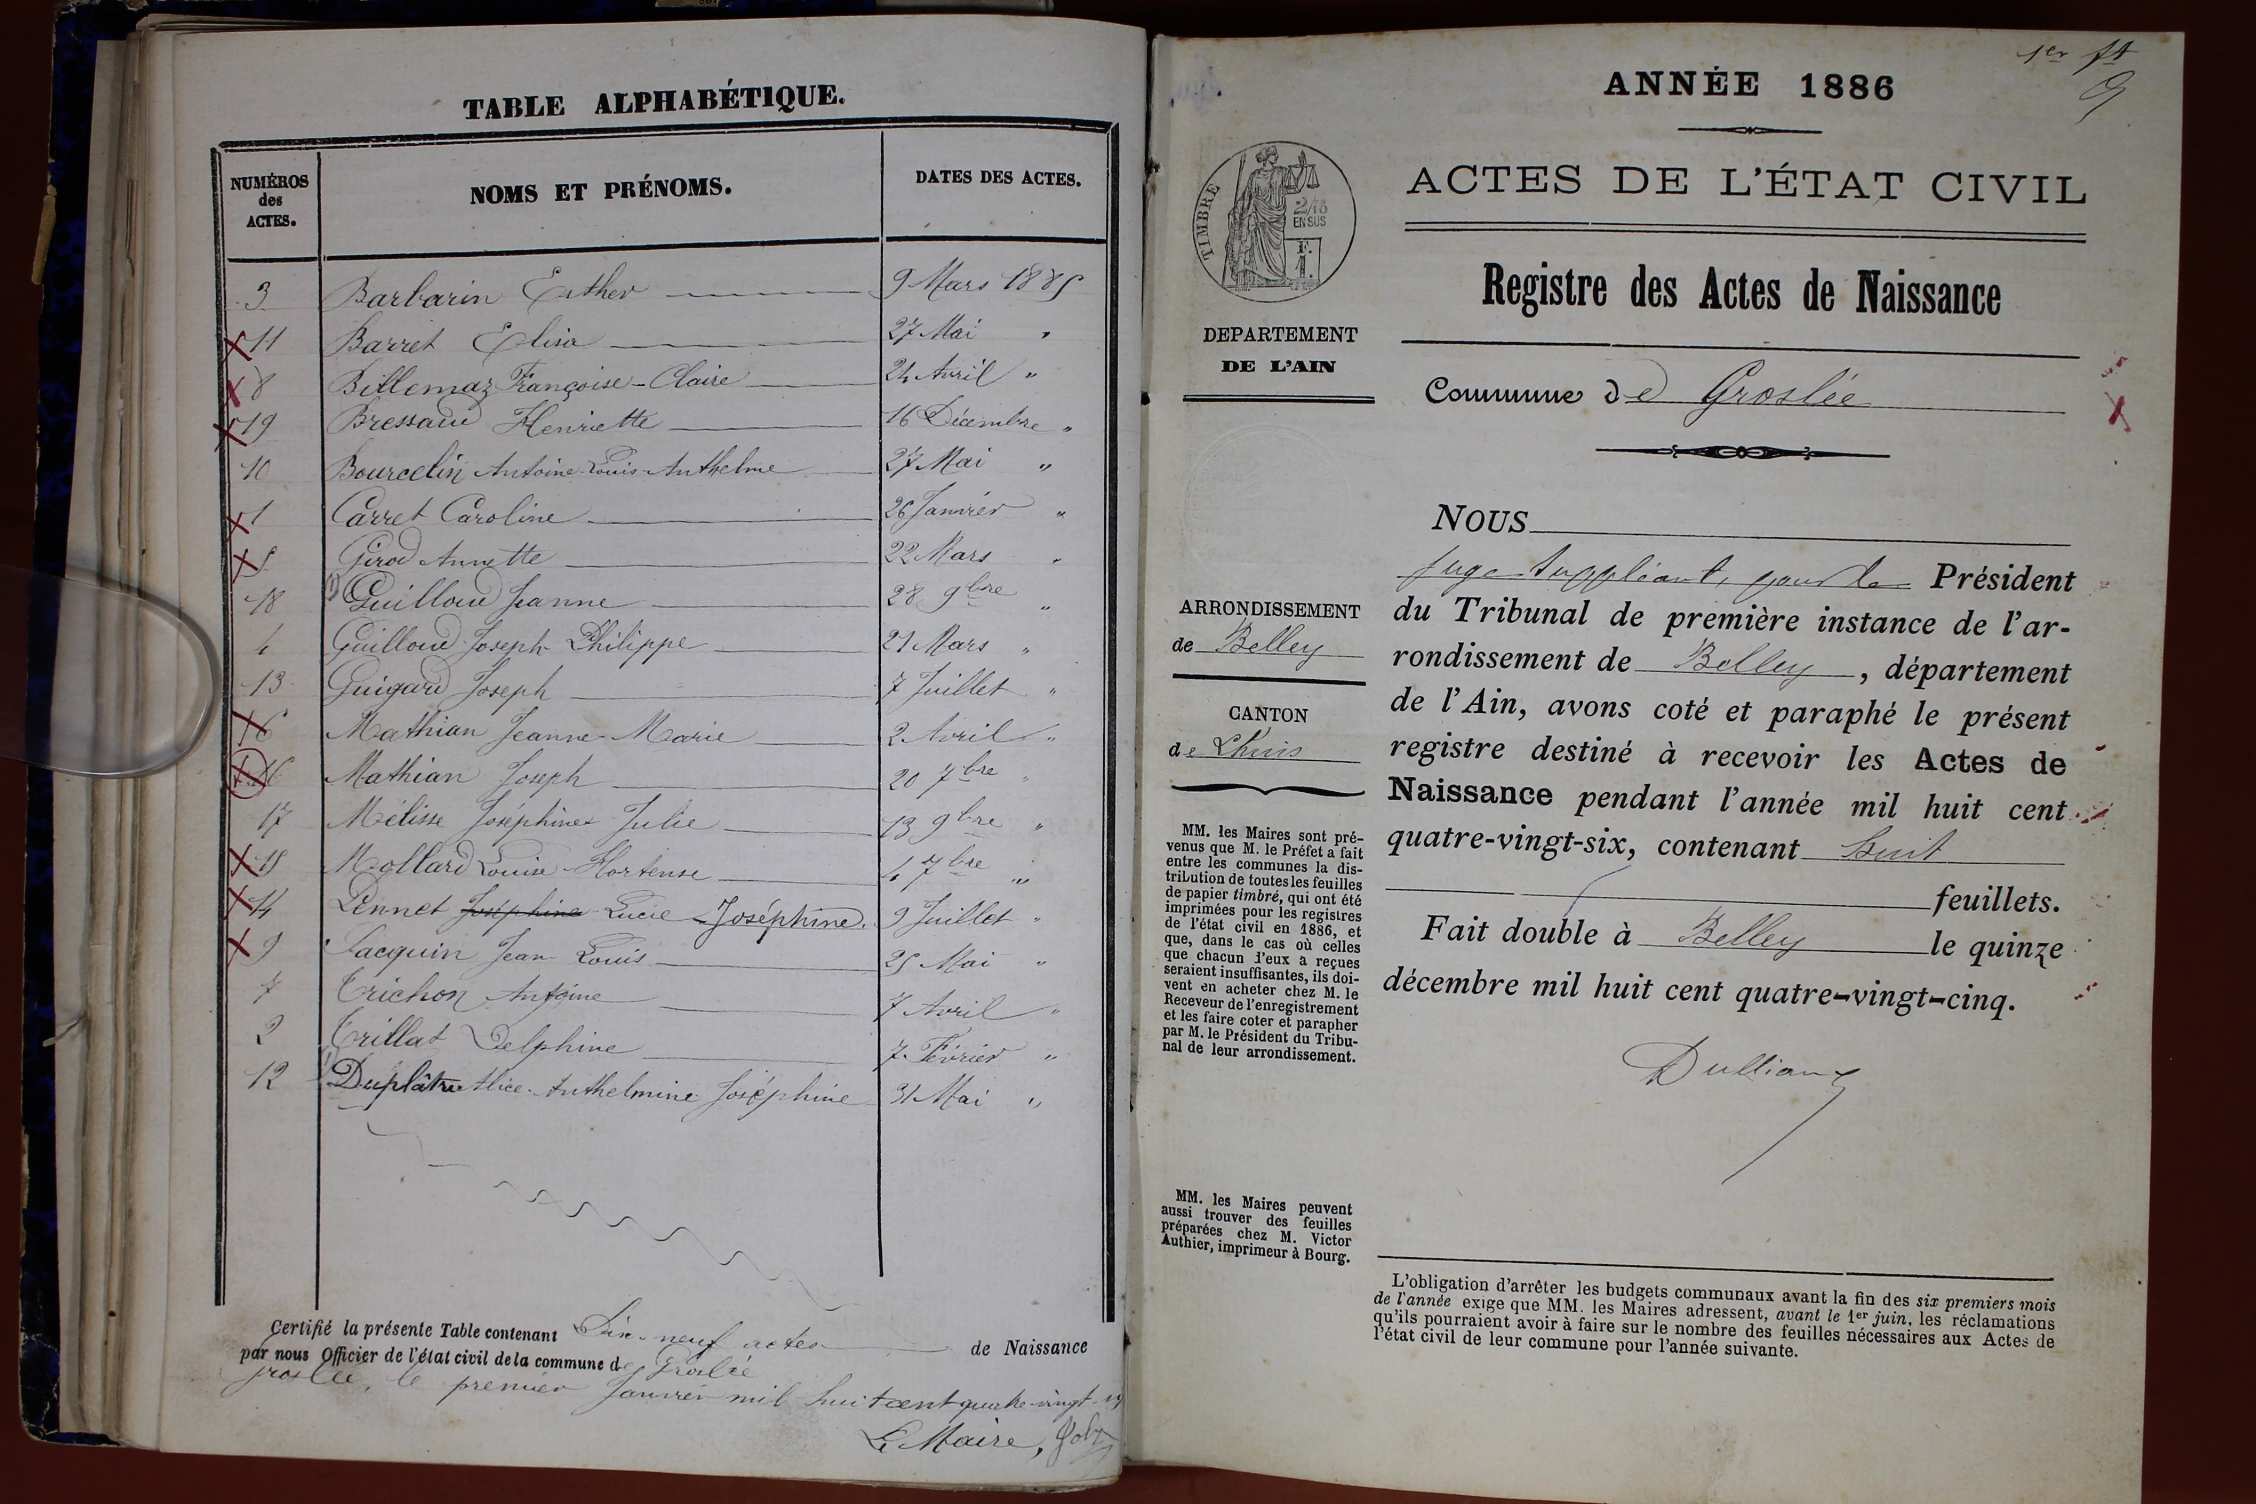 TABLE ALPHABÉTIQUE.
NUMÉROS des ACTES.
NOMS ET PRÉNOMS.
DATES DES ACTES.
3 Barbarin Esther 9 Mars 1885
11 Barret Elisa 27 Mai "
8 Billemaz Françoise-Claire 24 Avril "
19 Bressaud Henriette 16 Décembre "
10 Bourcelin Antoine-Louis-Anthelme 27 Mai "
1 Carret Caroline 26 Janvier "
5 Girod Annette 22 Mars "
18 Guilloud Jeanne 28 9bre "
4 Guilloud Joseph Philippe 21 Mars "
13 Guigard Joseph 7 Juillet "
6 Mathian Jeanne-Marie 2 Avril "
16 Mathian Joseph 20 7bre "
17 Mélisse Joséphine Julie 13 9bre "
15 Mollard Louise-Hortense 4 7bre "
14 Pennet Joséphine Lucie Joséphine. 9 Juillet "
9 Jacquin Jean Louis 25 Mai "
7 Trichon Antoine 7 Avril "
2 Trillat Delphine 7 Février "
12 Duplâtre Alice-Anthelmine Joséphine 31 Mai "
Certifié la présente Table contenant Dix-neuf actes de Naissance
par nous Officier de l'état civil de la commune de Groslée
Groslée, le premier Janvier mil huit cent quatre-vingt-
Le Maire,
1er ft
ANNÉE 1886
ACTES DE L'ÉTAT CIVIL
Registre des Actes de Naissance
TIMBRE
2/10
EN SUS
F.
1.
DEPARTEMENT
DE L'AIN
Commune de Groslée
ARRONDISSEMENT
de Belley
CANTON
de Lhuis
MM. les Maires sont pré-
venus que M. le Préfet a fait
entre les communes la dis-
tribution de toutes les feuilles
de papier timbré, qui ont été
imprimées pour les registres
de l'état civil en 1886, et
que, dans le cas où celles
que chacun d'eux a reçues
seraient insuffisantes, ils doi-
vent en acheter chez M. le
Receveur de l'enregistrement
et les faire coter et parapher
par M. le Président du Tribu-
nal de leur arrondissement.
MM. les Maires peuvent
aussi trouver des feuilles
préparées chez M. Victor
Authier, imprimeur à Bourg.
NOUS
Juge suppléant, pour le Président
du Tribunal de première instance de l'ar-
rondissement de Belley, département
de l'Ain, avons coté et paraphé le présent
registre destiné à recevoir les Actes de
Naissance pendant l'année mil huit cent
quatre-vingt-six, contenant huit
feuillets.
Fait double à Belley le quinze
décembre mil huit cent quatre-vingt-cinq.
L'obligation d'arrêter les budgets communaux avant la fin des six premiers mois
de l'année exige que MM. les Maires adressent, avant le 1er juin, les réclamations
qu'ils pourraient avoir à faire sur le nombre des feuilles nécessaires aux Actes de
l'état civil de leur commune pour l'année suivante.